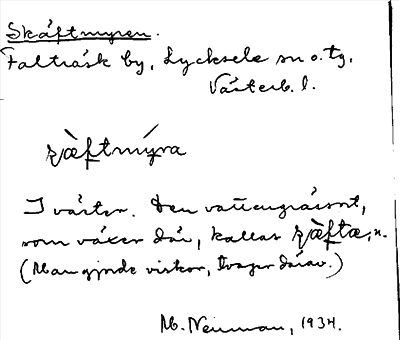 Skäftmyren.
Falträsk by, Lycksele sn o. tg,
Västerb. l.
I väster. Den vattengrässort,
som växer där, kallas
(Man gjorde viskor, tvagor därav.)
M. Neuman, 1934.